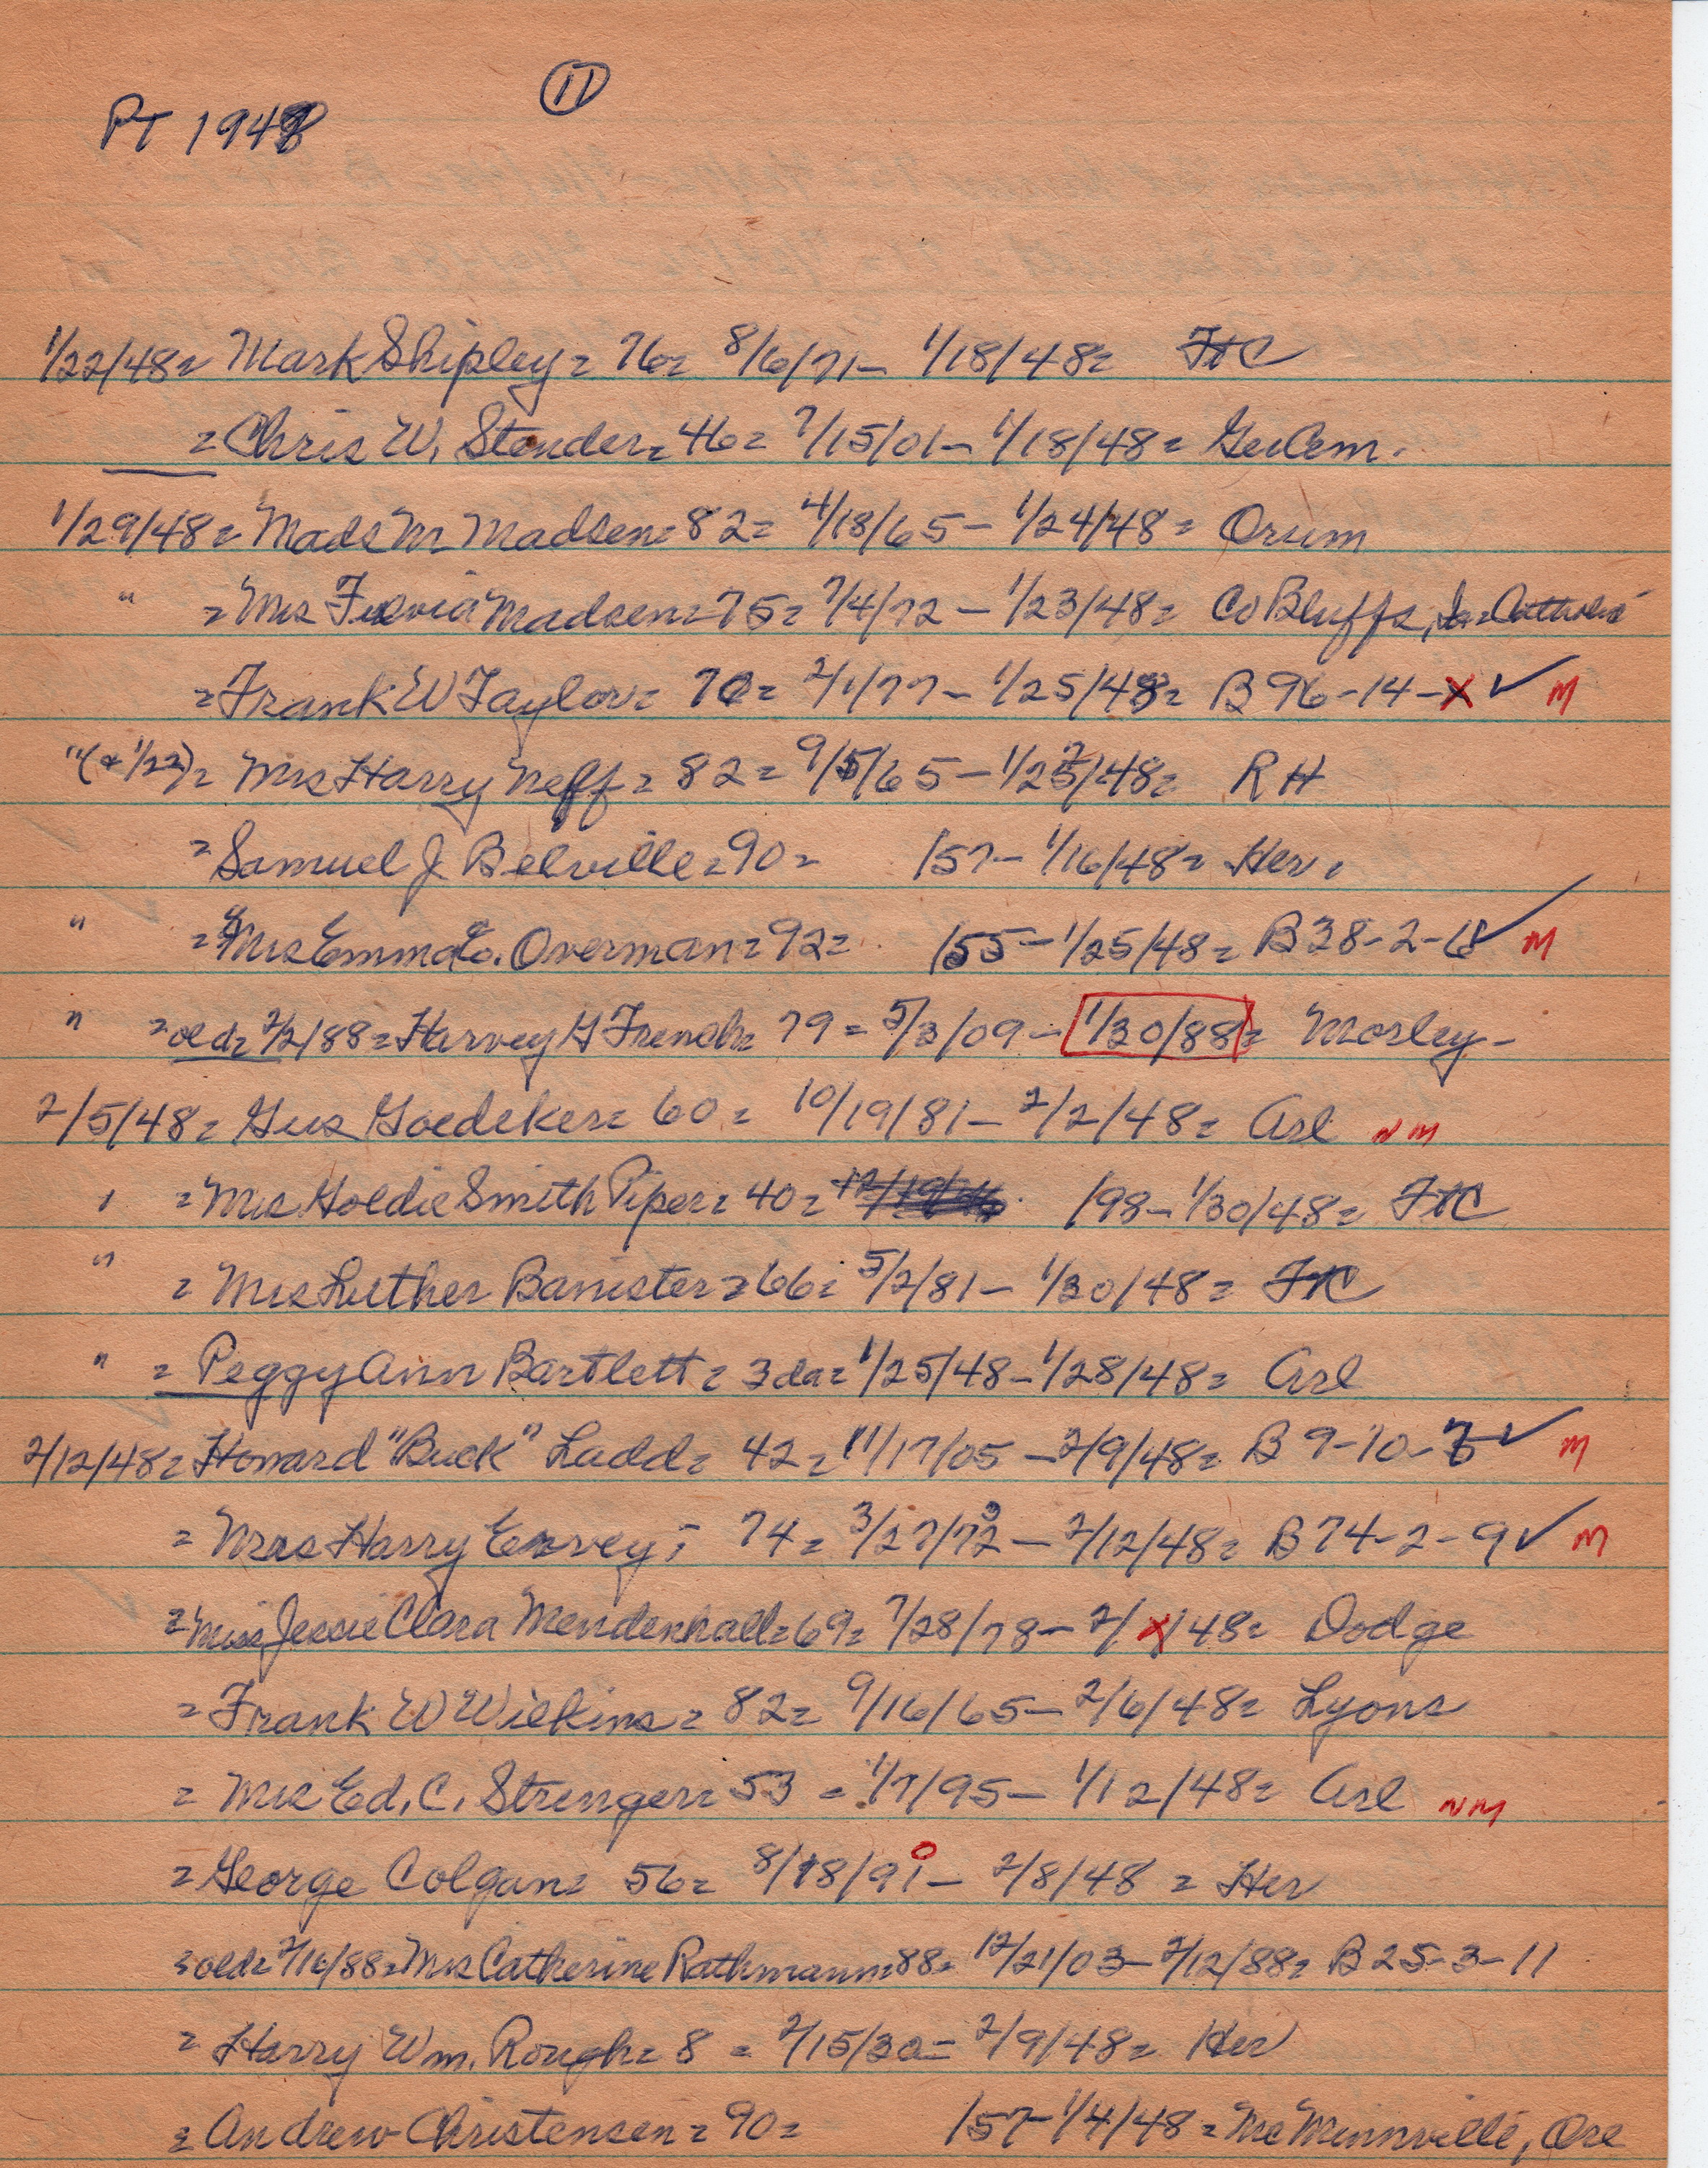 11
PT 1948
1/22/48= Mark Shipley= 76= 8/6/71- 1/18/48= FtC
=Chris W. Stender= 46= 7/15/01- 1/18/48= GerCem.
1/29/48= Mads M Madsen= 82= 4/18/65- 1/24/48= Orum
" =Mrs Madsen= 75= 7/4/72- 1/23/48= Co Bluffs, Ia=Catholic
=Frank W Taylor= 70= 2/1/77- 1/25/48= B 96-14-X ✓ M
"(+ 1/22)= Mrs Harry Neff= 82= 9/5/65- 1/27/48= R H
=Samuel J Belville=90= /57- 1/16/48= Her=
" =Mrs Emma Overman=92= /55- 1/25/48= B38-2- ✓ M
" =old= 2/2/88=Harvey H French= 79= 5/3/09- 1/30/88= Morley-
2/5/48= Gus Goedeker= 60= 10/19/81- 2/2/48= Arl NM
" =Mrs Goldie Smith Piper= 40= /98- 1/30/48= FtC
" = Mrs Luther Banister=66= 5/2/81- 1/30/48= FtC
" = Peggy Ann Bartlett= 3da= 1/25/48- 1/28/48= Arl
2/12/48= Howard "Buck" Ladd= 42= 11/17/05- 2/9/48= B 9-10- ✓ M
= Mrs Harry 74= 3/27/73- 2/12/48= B74-2-9 ✓ M
=Miss Jessie Clara Mendenhall=69= 7/28/78- 2/X/48= Dodge
=Frank W Wilkins= 82= 9/16/65- 2/6/48= Lyons
= Mrs Ed. C. Strenger= 53= 1/7/95- 1/12/48= Arl NM
=George Colgan= 56= 8/18/91 0 - 2/8/48= Her
=old= 2/16/88=Mrs Catherine Rathmann=88= 12/21/03- 2/12/88= B25-3-11
= Harry Wm. Rough= 8= 2/15/30= 2/9/48= Her
=Andrew Christensen=90= /57- 1/4/48= McMinnville, Ore